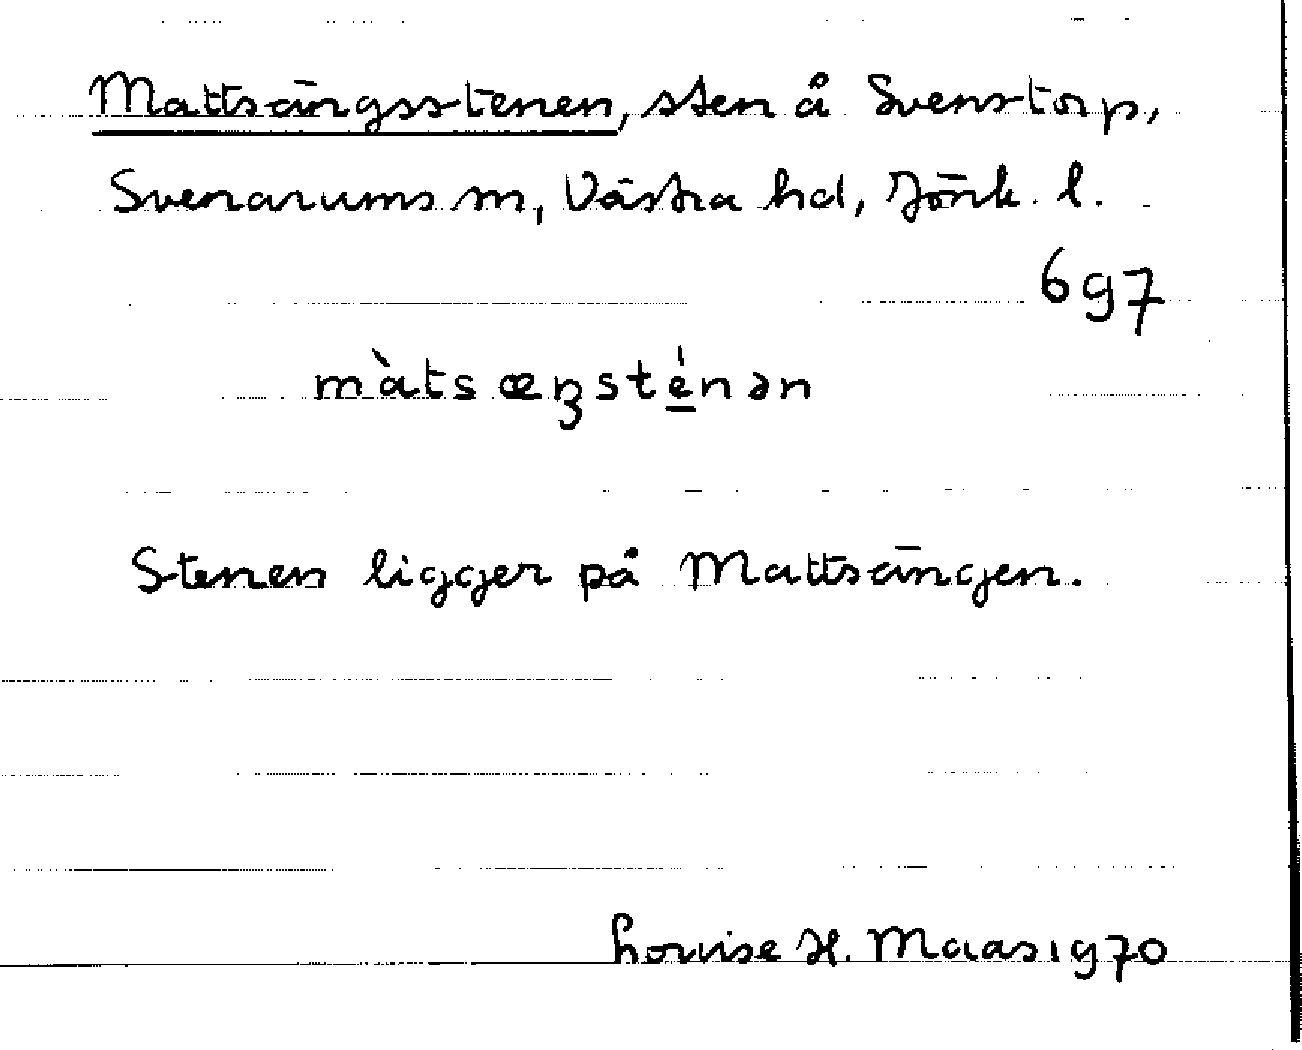 Mattsängsstenen, sten å Svenstorp,
Svenarums sn, Västra hd, Jönk. l.
697
màtsæŋsté̱nən
Stenen ligger på Mattsängen.
Louise H. Maas 1970